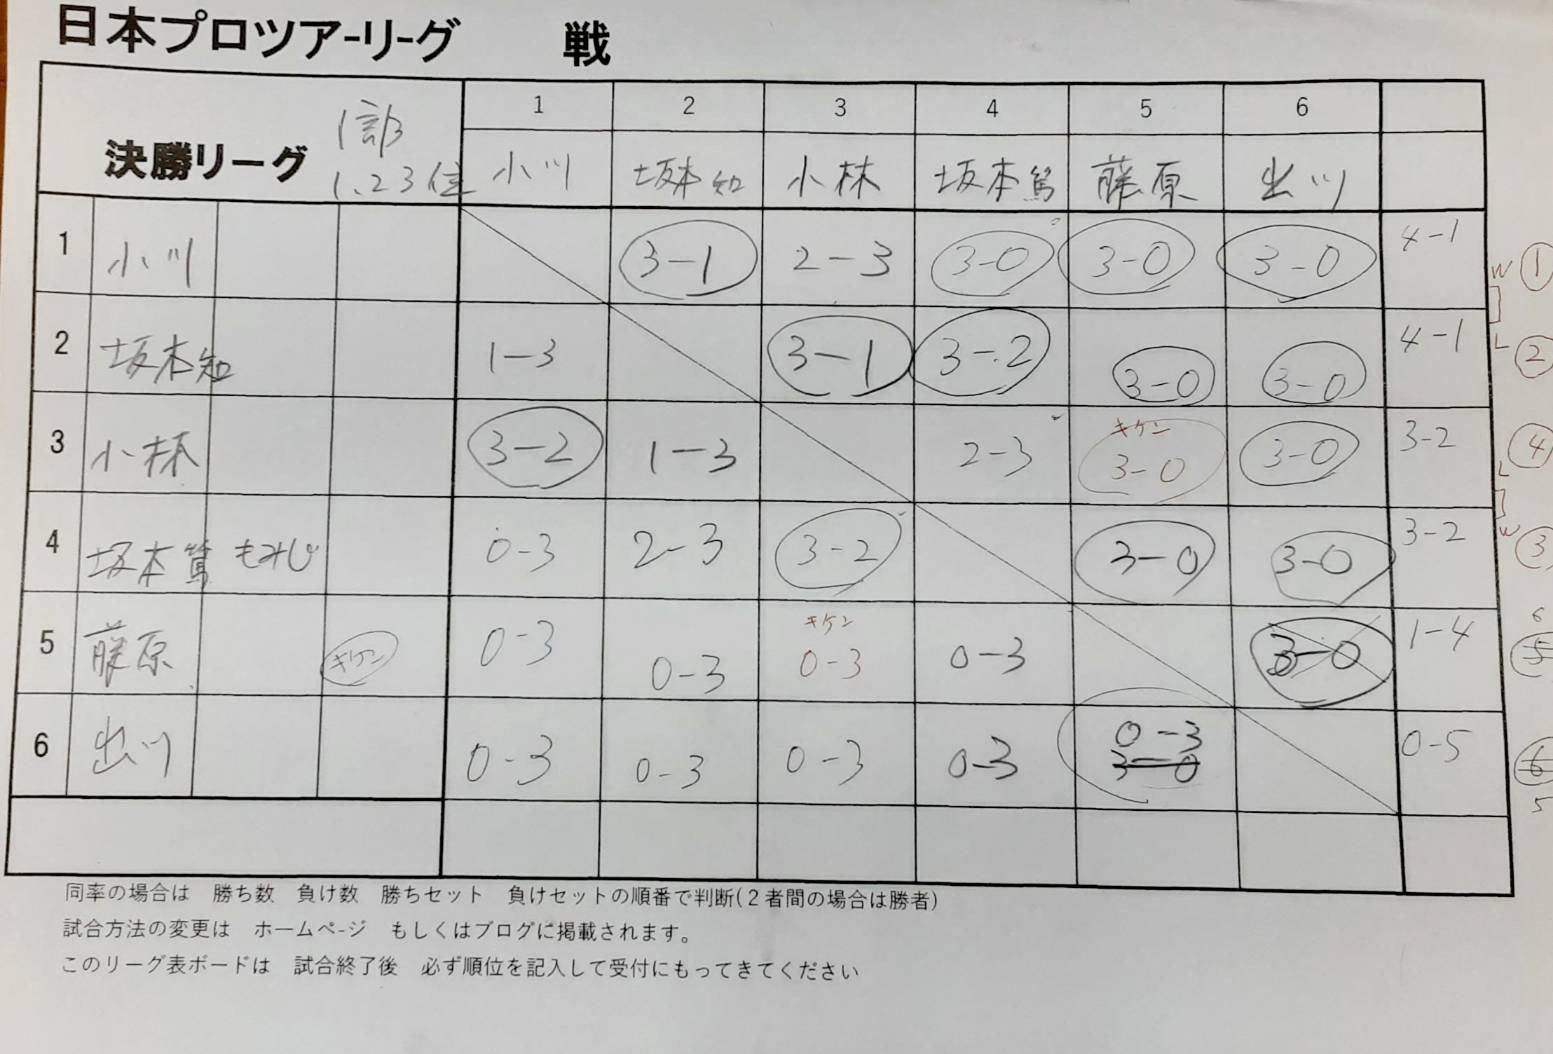 日本プロツアーリーグ 戦
決勝リーグ 1部 1 2 3 4 5 6
1、2 3位 小川 坂本知 小林 坂本篤 藤原 出川
1 小川 3-1 2-3 3-0 3-0 3-0 4-1 W ①
2 坂本知 1-3 3-1 3-2 3-0 3-0 4-1 L ②
キケン
3 小林 3-2 1-3 2-3 3-0 3-0 3-2 L ④
4 坂本篤 もみじ 0-3 2-3 3-2 3-0 3-0 3-2 W ③
キケン 6
5 藤原 キケン 0-3 0-3 0-3 0-3 3-0 1-4 ⑤
0-3
6 出川 0-3 0-3 0-3 0-3 3-0 0-5 ⑥
5
同率の場合は 勝ち数 負け数 勝ちセット 負けセットの順番で判断(2者間の場合は勝者)
試合方法の変更は ホームページ もしくはブログに掲載されます。
このリーグ表ボードは 試合終了後 必ず順位を記入して受付にもってきてください